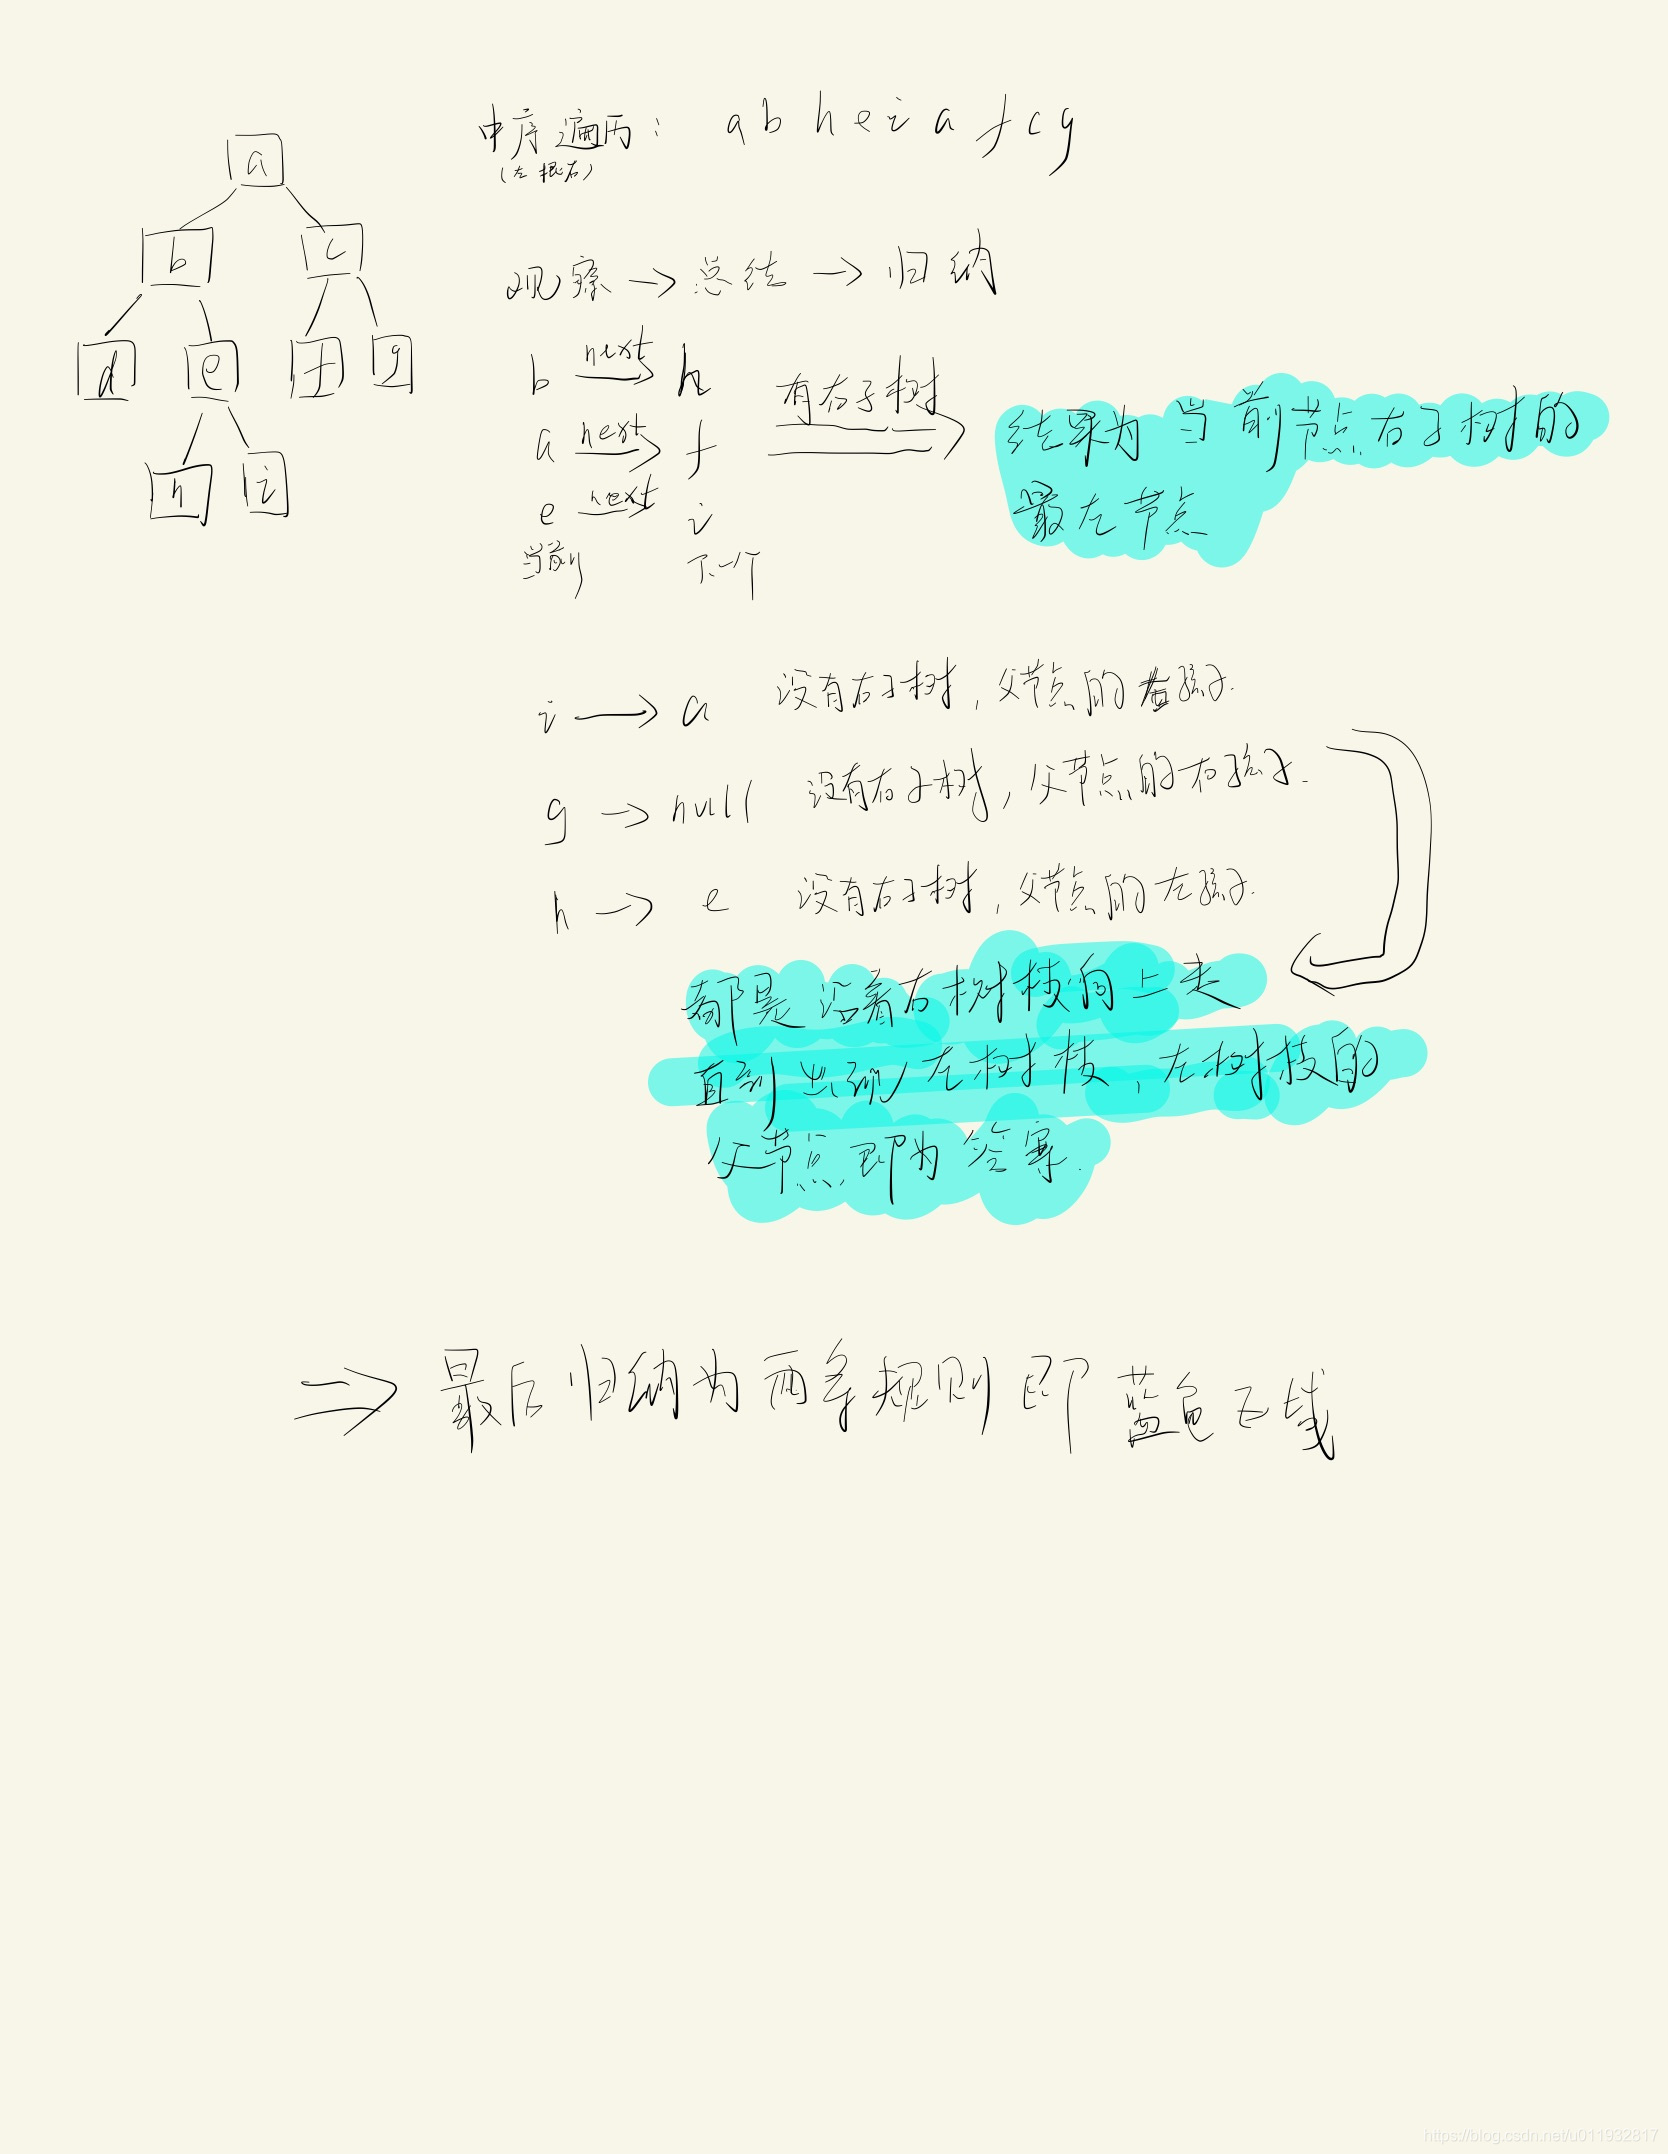 中序遍历： a b h e i a f c g
(左根右)
a
b c
d e f g
h i
观察 → 总结 → 归纳
b next h
a next f 有右子树 结果为当前节点右子树的
e next i 最左节点
当前 下一个
i → a 没有右子树，父节点的右孩子.
g → null 没有右子树，父节点的右孩子.
h → e 没有右子树，父节点的左孩子.
都是沿着右树枝向上走
直到出现左树枝，左树枝的
父节点即为答案.
⇒ 最后归纳为两条规则即蓝色区域
https://blog.csdn.net/u011932817